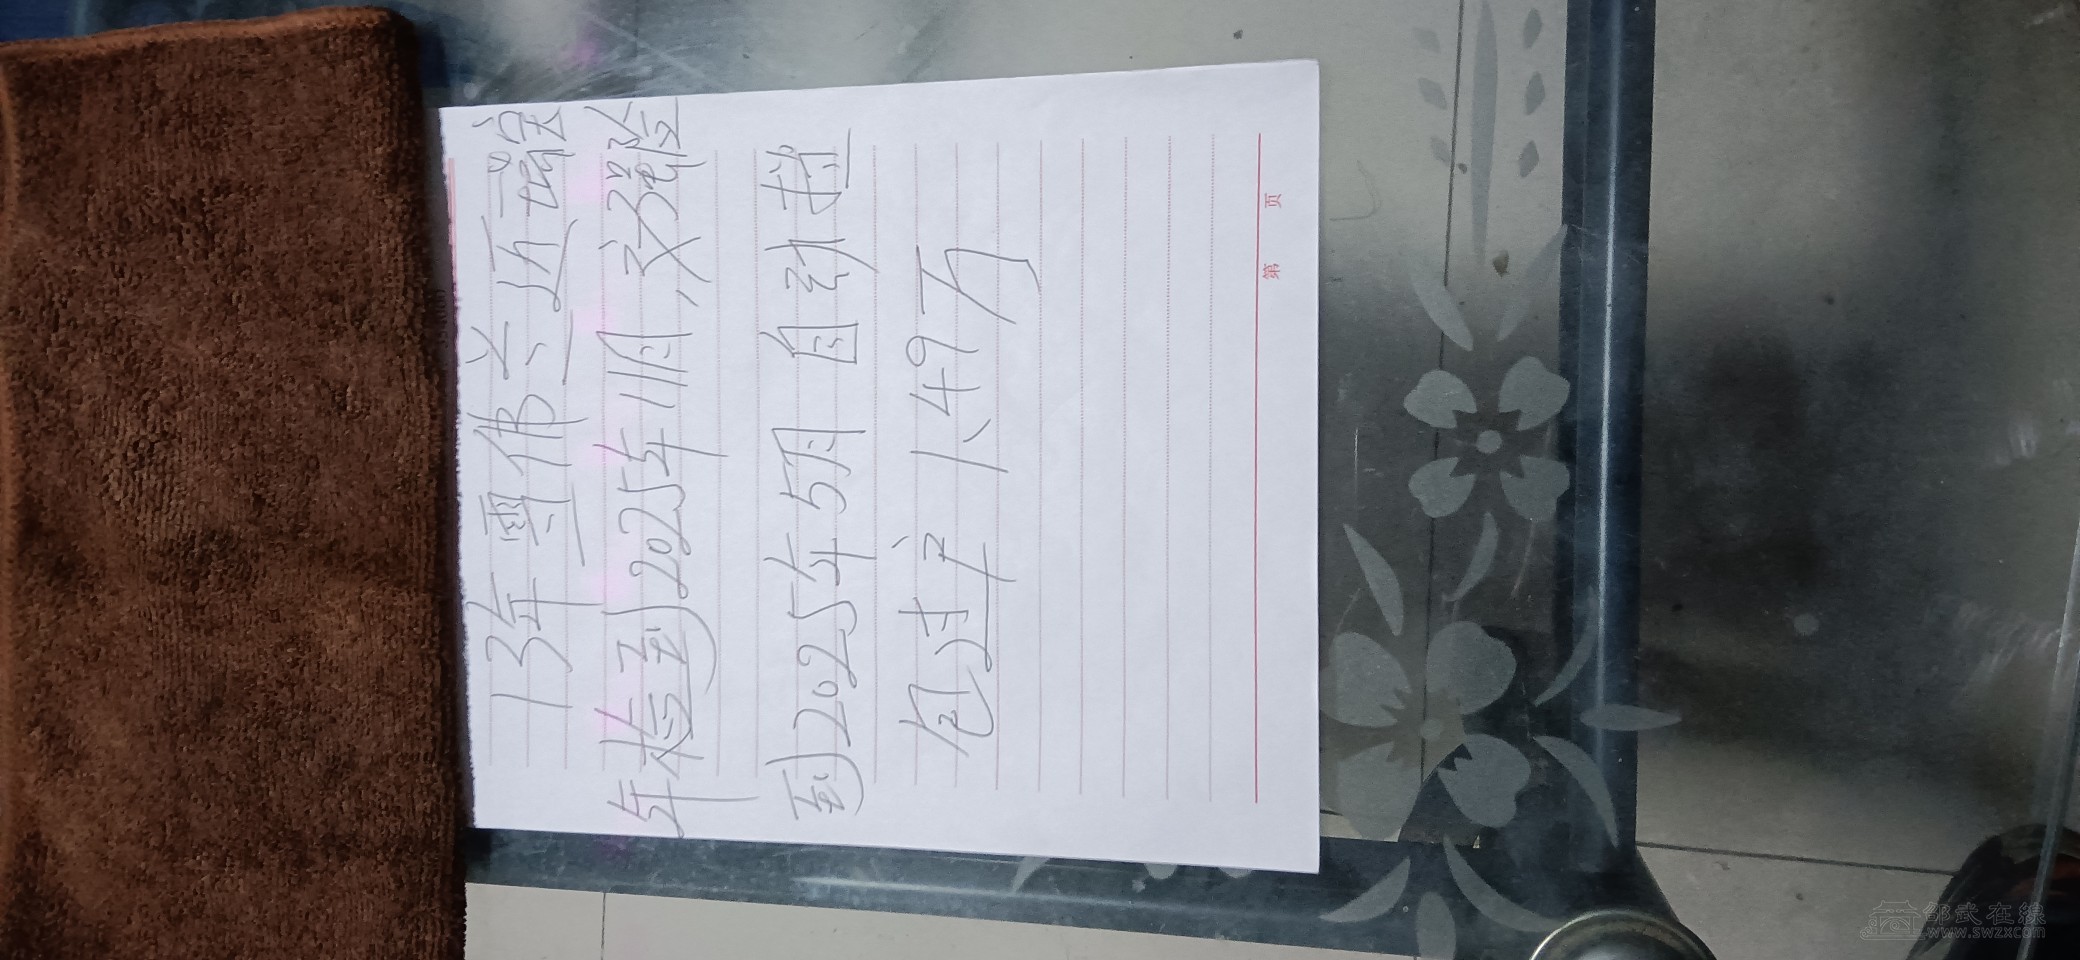 13年雪佛兰迈锐宝
年检到2025年11月,交强险
到2025年5月 自动挡
包过户 1.49万
第 页
邵武在線
www.swzx.com